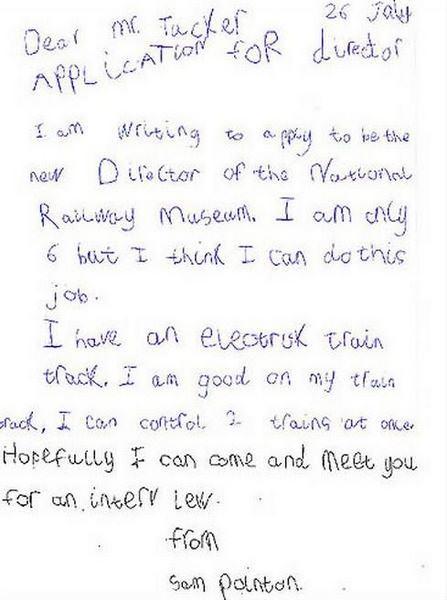 26 July
Dear Mr. Tucker
APPLICATION FOR director
I am writing to apply to be the
new Director of the National
Railway Museum. I am only
6 but I think I can do this
job.
I have an electruk train
track. I am good on my train
rack, I can control 2 trains at once
Hopefully I can come and meet you
for an interview.
from
Sam pointon.